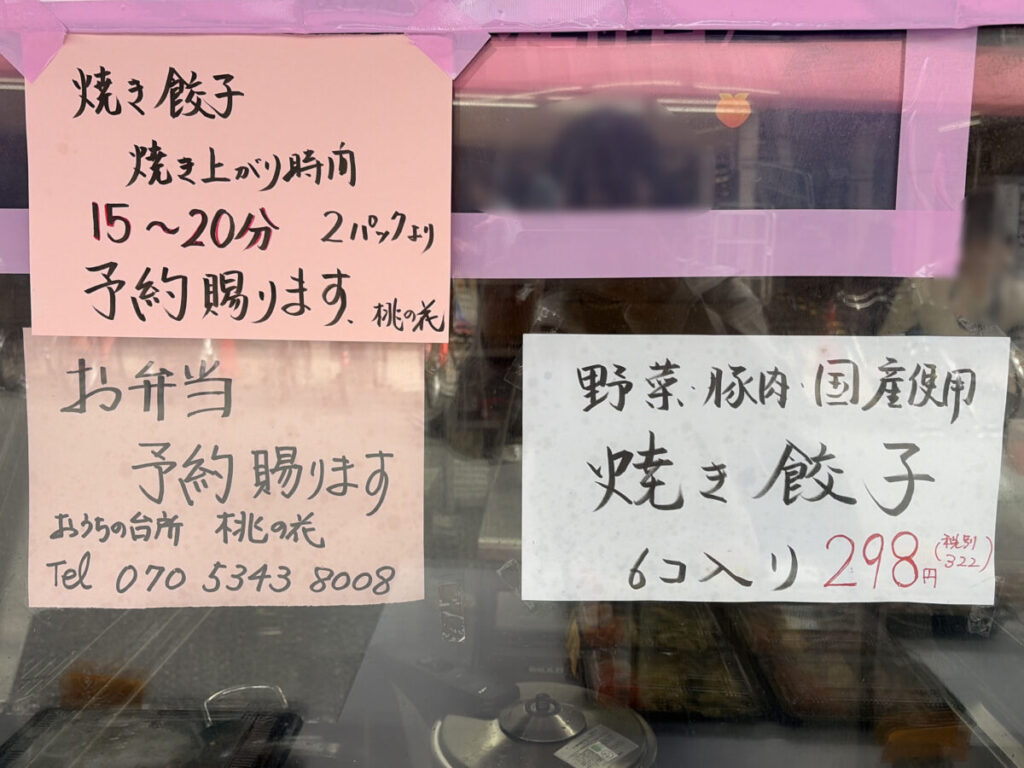 焼き餃子
焼き上がり時間
15～20分 2パックより
予約賜ります、桃の花
お弁当
予約賜ります
おうちの台所 桃の花
Tel 070 5343 8008
野菜・豚肉・国産使用
焼き餃子
6コ入り 298円(税別322)